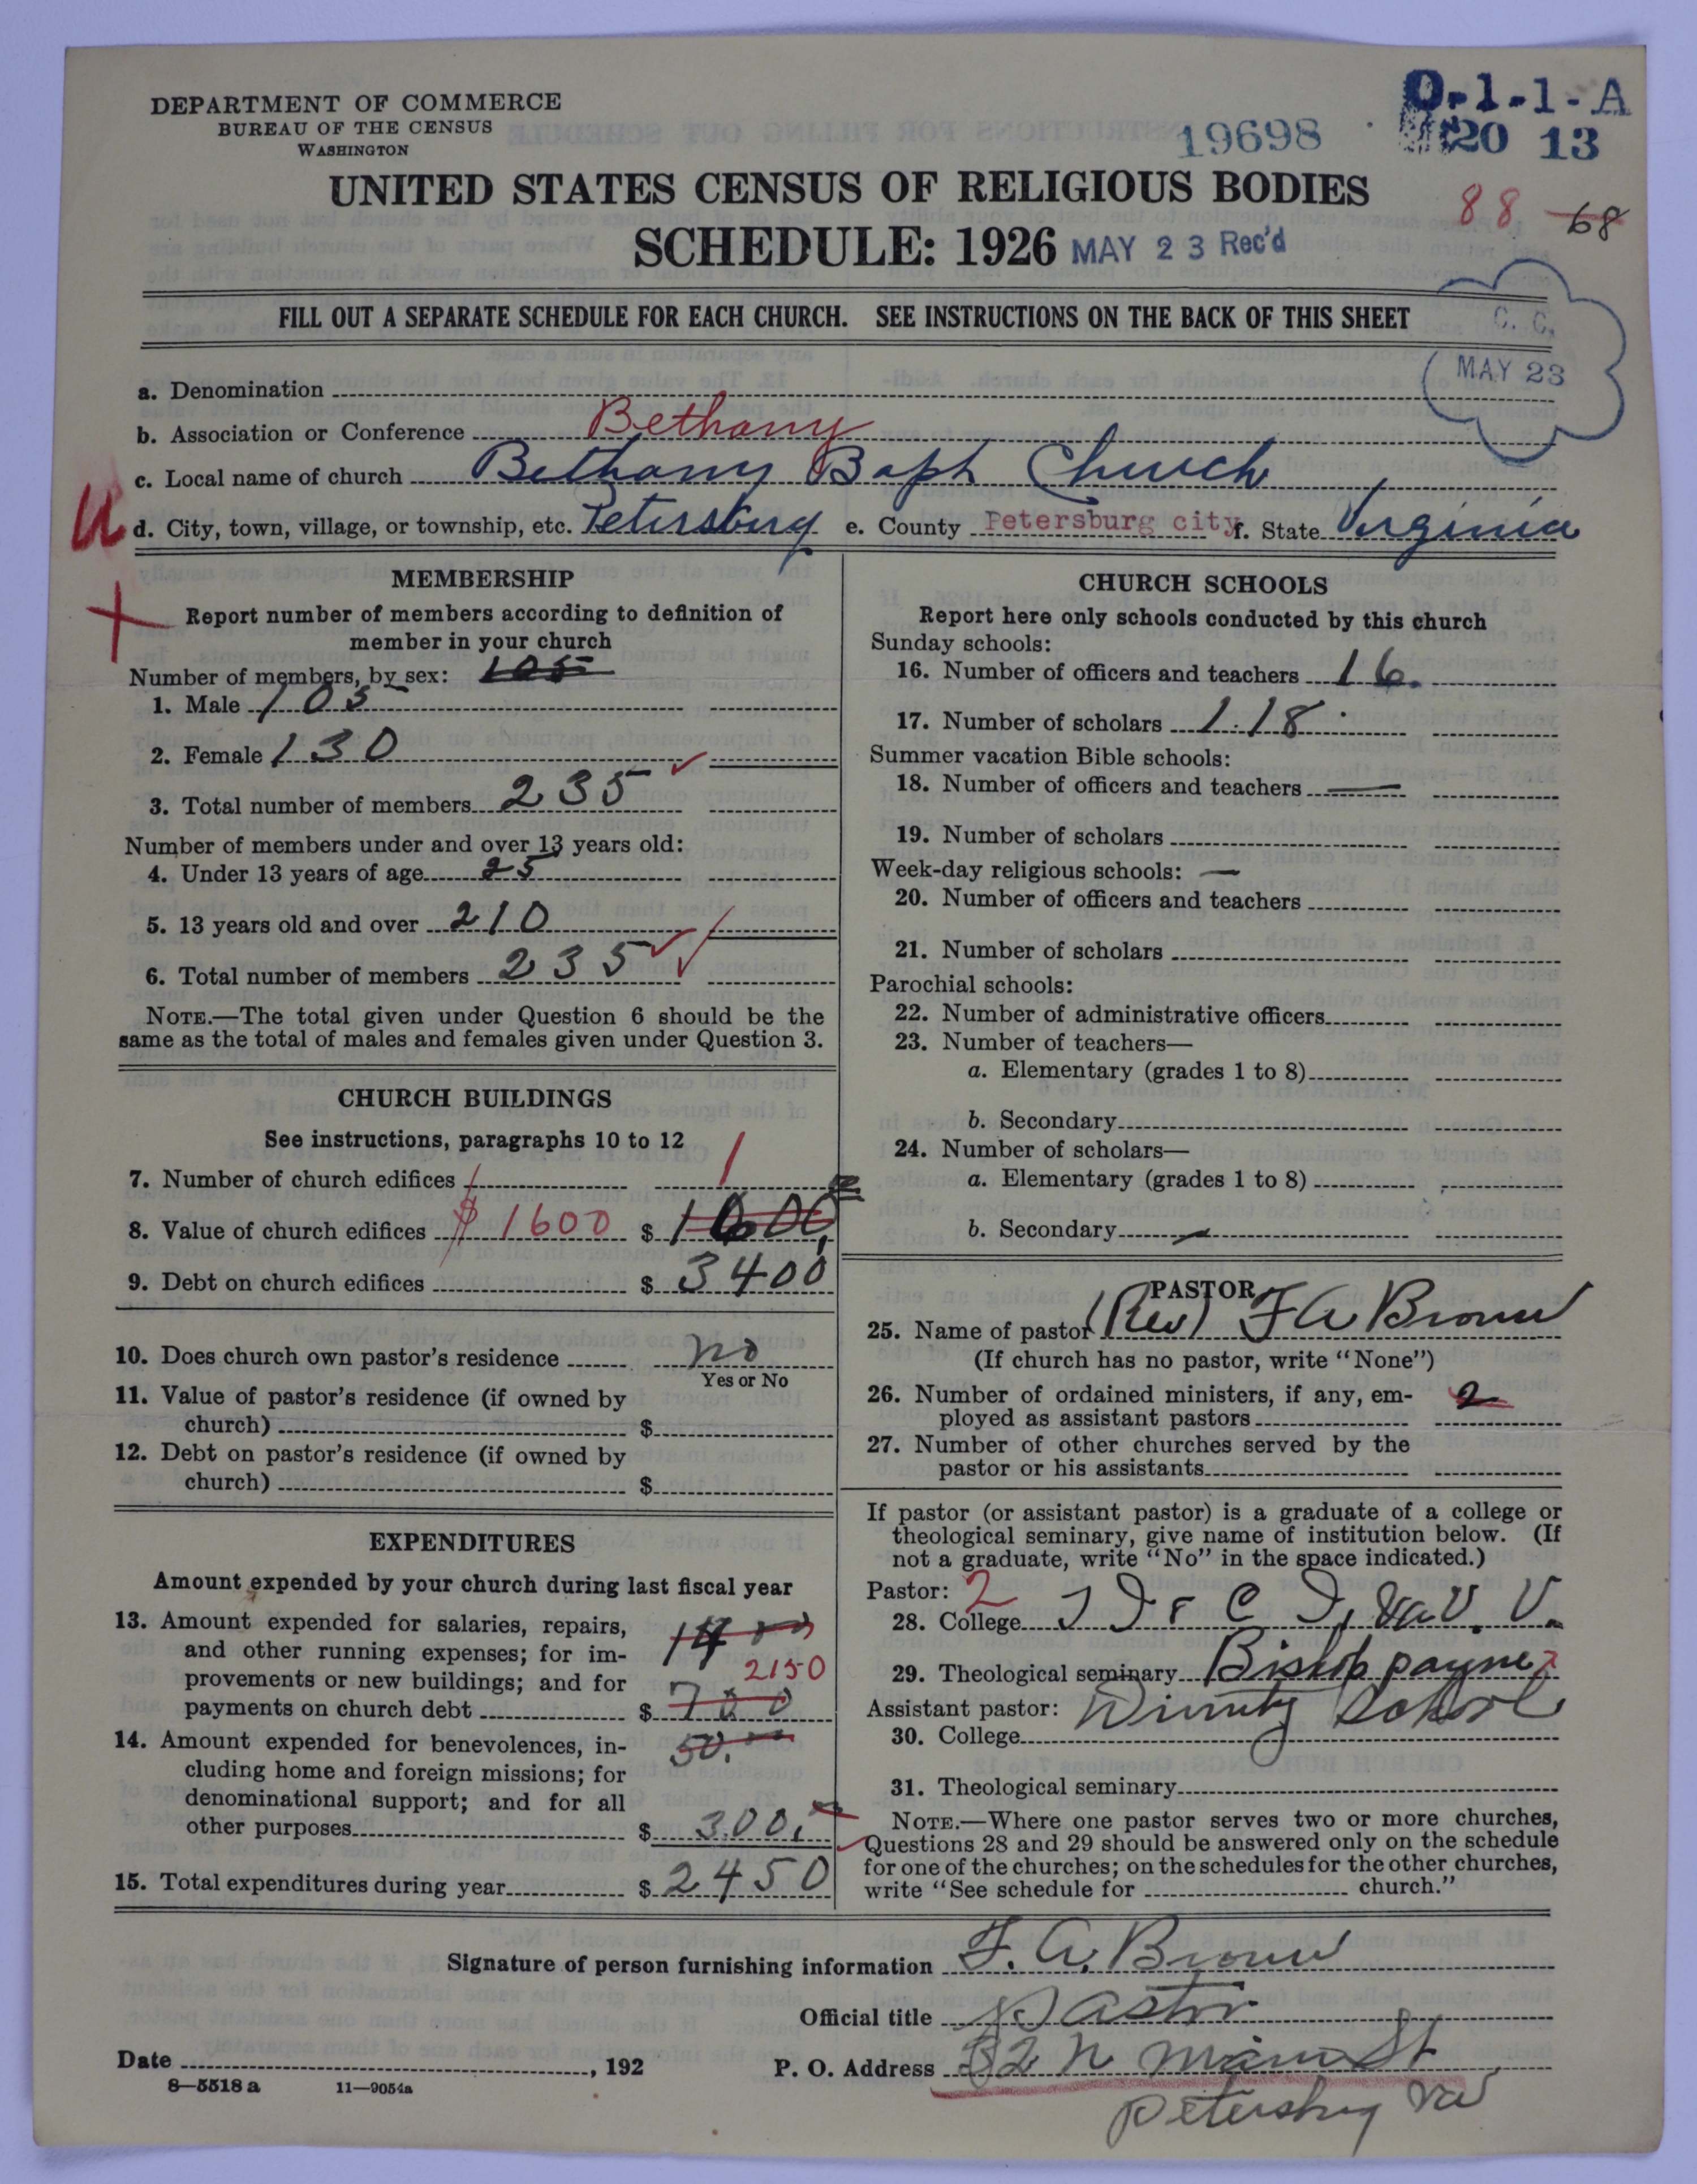 DEPARTMENT OF COMMERCE
BUREAU OF THE CENSUS
WASHINGTON
19698
0-1-1-A
20 13
UNITED STATES CENSUS OF RELIGIOUS BODIES
88 68
SCHEDULE: 1926 MAY 23 Rec'd
FILL OUT A SEPARATE SCHEDULE FOR EACH CHURCH. SEE INSTRUCTIONS ON THE BACK OF THIS SHEET
C. C.
MAY 23
a. Denomination
b. Association or Conference Bethany
c. Local name of church Bethany Bapt Church
d. City, town, village, or township, etc. Petersburg e. County Petersburg city f. State Virginia
MEMBERSHIP
Report number of members according to definition of
member in your church
Number of members, by sex: 105
1. Male 105
2. Female 130
3. Total number of members 235
Number of members under and over 13 years old:
4. Under 13 years of age 25
5. 13 years old and over 210
6. Total number of members 235
NOTE.—The total given under Question 6 should be the
same as the total of males and females given under Question 3.
CHURCH BUILDINGS
See instructions, paragraphs 10 to 12
7. Number of church edifices 1 1
8. Value of church edifices $1600 $ 1600
9. Debt on church edifices $ 3400
10. Does church own pastor's residence no
Yes or No
11. Value of pastor's residence (if owned by
church) $
12. Debt on pastor's residence (if owned by
church) $
EXPENDITURES
Amount expended by your church during last fiscal year
13. Amount expended for salaries, repairs,
and other running expenses; for im-
provements or new buildings; and for 2150
payments on church debt $ 700
14. Amount expended for benevolences, in- 50.00
cluding home and foreign missions; for
denominational support; and for all
other purposes $ 300.
15. Total expenditures during year $ 2450
CHURCH SCHOOLS
Report here only schools conducted by this church
Sunday schools:
16. Number of officers and teachers 16.
17. Number of scholars 118
Summer vacation Bible schools:
18. Number of officers and teachers —
19. Number of scholars
Week-day religious schools: —
20. Number of officers and teachers
21. Number of scholars
Parochial schools:
22. Number of administrative officers
23. Number of teachers—
a. Elementary (grades 1 to 8)
b. Secondary
24. Number of scholars—
a. Elementary (grades 1 to 8)
b. Secondary —
PASTOR
25. Name of pastor (Rev) F A Brown
(If church has no pastor, write "None")
26. Number of ordained ministers, if any, em- 2
ployed as assistant pastors
27. Number of other churches served by the
pastor or his assistants
If pastor (or assistant pastor) is a graduate of a college or
theological seminary, give name of institution below. (If
not a graduate, write "No" in the space indicated.)
Pastor: 2
28. College Va. U.
29. Theological seminary Bishop payne
Assistant pastor: Divinity School
30. College
31. Theological seminary
NOTE.—Where one pastor serves two or more churches,
Questions 28 and 29 should be answered only on the schedule
for one of the churches; on the schedules for the other churches,
write "See schedule for church."
Signature of person furnishing information F. A. Brown
Official title Pastor
Date , 192 P. O. Address 32 N Main St
8—5518 a 11—9054a
Petersburg Va